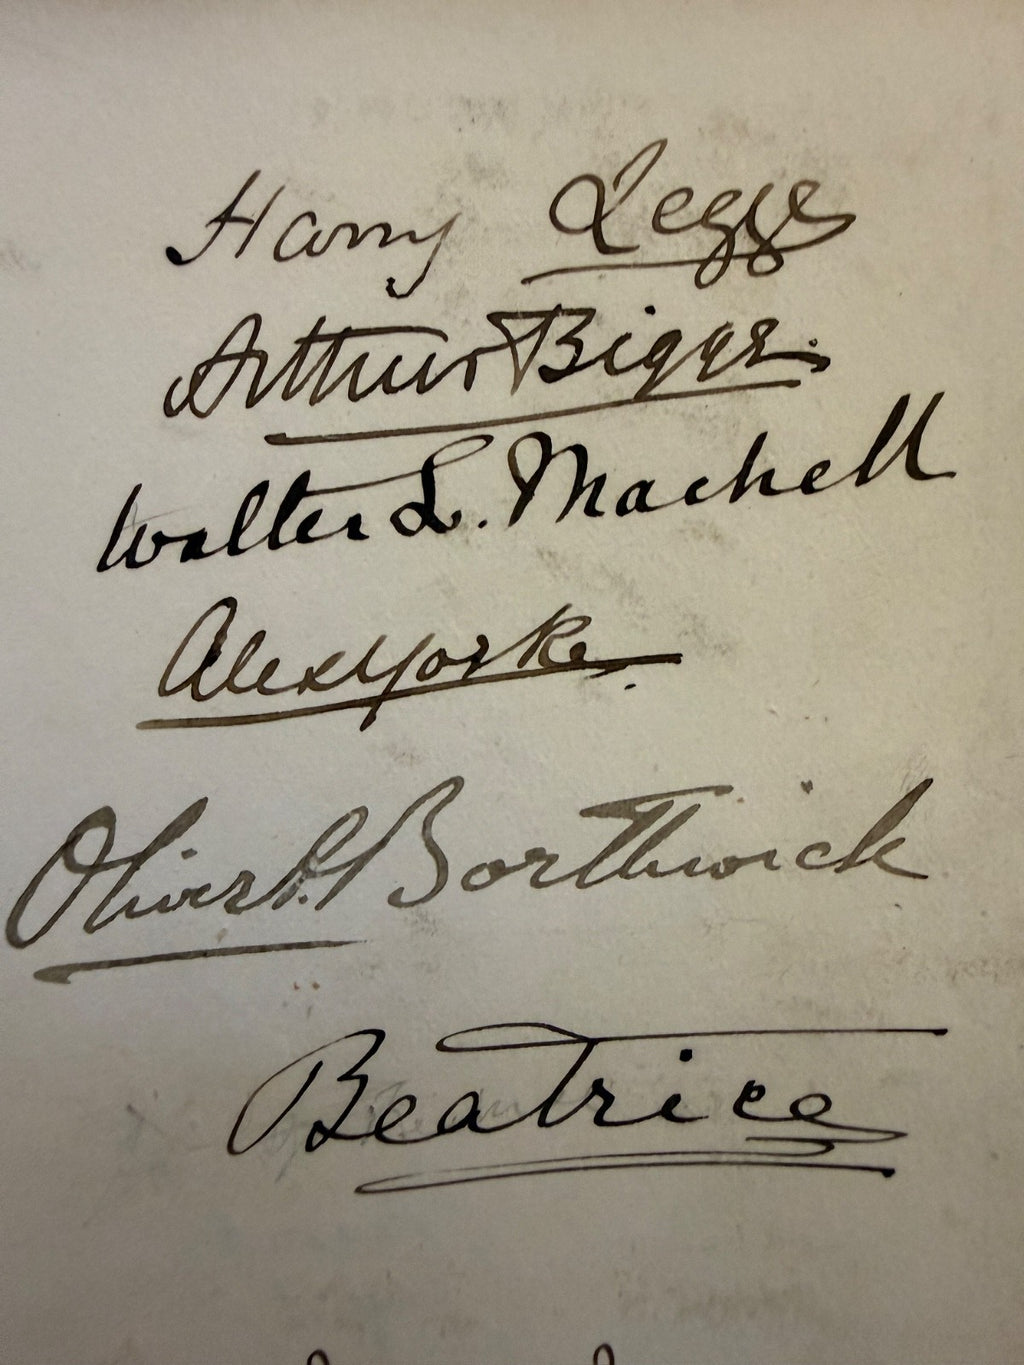 Harry Legge
Arthur Bigge.
Walter L. Machell
Alex Yorke.
Oliver A. Borthwick
Beatrice